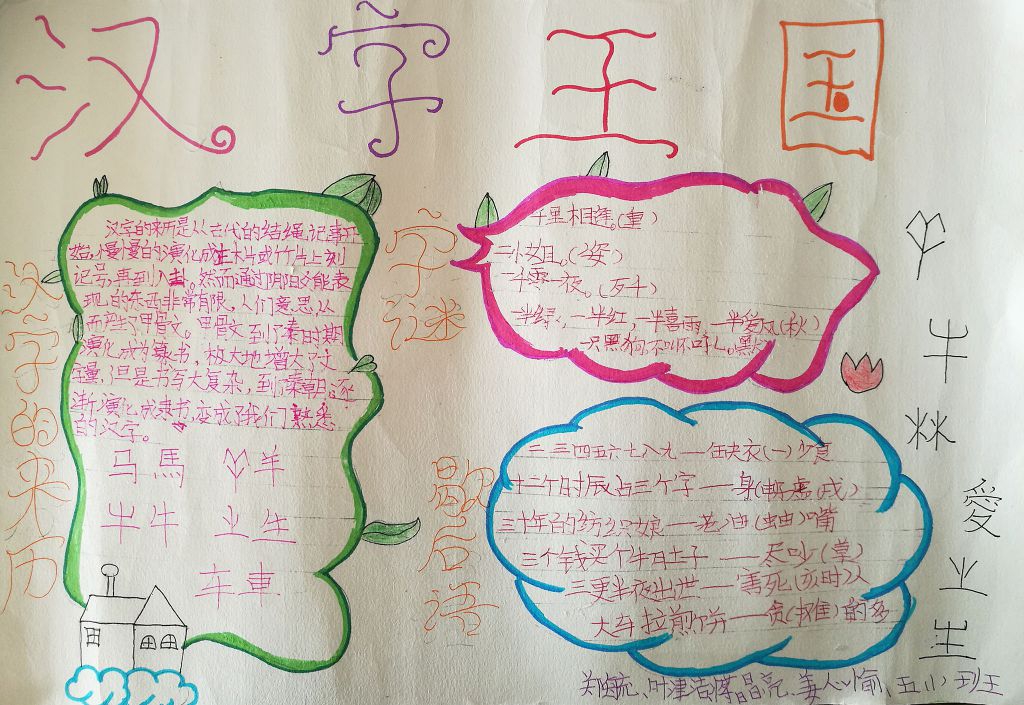 汉字王国
汉字的来历
汉字的来历是从古代的结绳记事开
始,慢慢的演化成在木片或竹片上刻
记号,再到八卦。然而通过阴阳爻能表
现的东西非常有限,人们意思从
而产生了甲骨文。甲骨文到了秦时期
演化成为篆书,极大地增大了文
字量,但是书写太复杂,到秦朝,逐
渐演化成隶书,变成了我们熟悉
的汉字。
马馬 羊
牛牛 业生
车車
字谜
千里相逢。(重)
二小姐。(姿)
一千零一夜。(歹千)
一半绿,一半红,一半喜雨,一半爱风(秋)
一只黑狗,不叫不吼。默
歇后语
二三四五六七八九——缺衣(一)少食
十二个时辰占三个字——身(申虚戌)
三十年的纺织娘——老油(蚰)嘴
三个钱买个牛肚子——尽吵(草)
三更半夜出世——害死(亥时)人
大车拉煎饼——贪(摊)的多
牛
林
愛
业
生